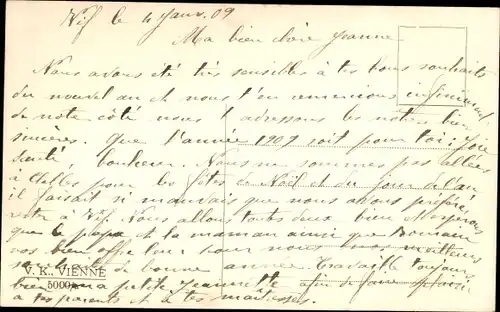 Vif le 4 Janv. 09
Ma bien chère Jeanne
Nous avons été très sensibles à tes bons souhaits
du nouvel an et nous t'en remercions infiniment
de notre côté nous t'adressons les nôtres bien
sincères. Que l'année 1909 soit pour toi: joie
santé, bonheur. Nous ne sommes pas allées
à Claix pour les fêtes de Noël et du jour de l'an
il faisait si mauvais que nous avons préféré
rester à Vif. Nous allons toutes deux bien espérons
que le papa et la maman ainsi que Romain
vos bien offre leur pour nous nos meilleurs
souhaits de bonne année. Travaille toujours
bien ma petite Jeannette afin de faire plaisir
à tes parents et à tes maîtresses.
V. K., VIENNE
5000